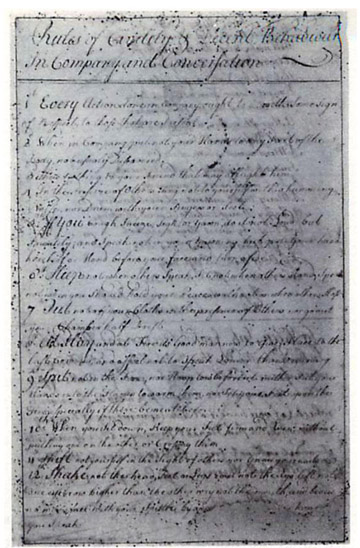 Rules of Civility & Decent Behaviour
In Company and Conversation
1st Every Action done in Company ought to with Some Sign
of Respect to those that are Present
2 When in Company put not your Hands to any Part of the
Body not usually Discovered
3 Shew Nothing to your Friend that may him
4 In the Presence of Others Sing not to yourself with a humming
Noise nor Drum with your Fingers or Feet
5 If You Cough Sneeze Sigh or Yawn do it not Loud but
Privately and Speak not in your Yawning but put Your
before your face and turn aside
6th Sleep not when others Speak Sit not when others stand Speak
not when you Should hold your Peace walk not on when others Stop
7 Put not off your Cloths in the presence of Others nor go out
your Chamber half Drest
8 At Play and at Fire its Good manners to Give Place to the
last and affect not to Speak Louder than ordinary
9 Spit not in the Fire, nor Stoop low before it neither Put your
Hands into the Flames to warm them, nor Set your Feet upon the
Fire especially if there be meat before it
10 When you Sit down, Keep your Feet firm and Even without
putting one on the other or Crossing them
11 Shift not yourself in the Sight of others nor Gnaw your nails
12 Shake not the head, Feet or Legs rowl not the Eys lift not
one eyebrow higher than the other wry not the mouth, and bedew
no with your Spittle by
you Speak